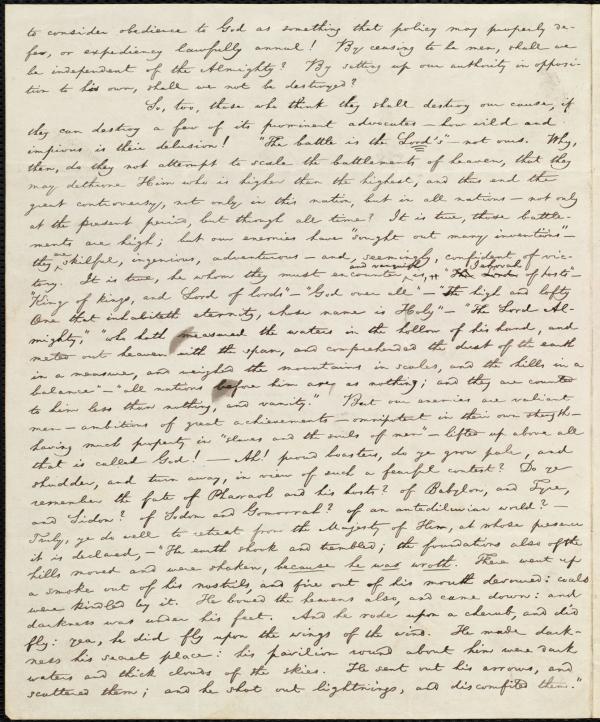 to consider obedience to God as something that policy may properly de-
fer, or expediency lawfully annul! By ceasing to be men, shall we
be independent of the Almighty? By setting up our authority in opposi-
tion to his own, shall we not be destroyed?
So, too, those who think they shall destroy our cause, if
they can destroy a few of its prominent advocates — how wild and
impious is their delusion! "The battle is the Lord's" — not ours. Why,
then, do they not attempt to scale the battlements of heaven, that they
may dethrone Him who is higher than the highest, and thus end the
great controversy, not only in this nation, but in all nations — not only
at the present period, but through all time? It is true, those battle-
ments are high; but our enemies have "sought out many inventions" —
they are skilful, ingenious, adventurous — and, seemingly, confident of vic-
tory. It is true, he whom they must encounter and vanquish is, "Jehovah of hosts" —
"King of kings, and Lord of lords" — "God over all" — "the high and lofty
One that inhabiteth eternity, whose name is Holy" — "The Lord Al-
mighty," "who hath measured the waters in the hollow of his hand, and
meted out heaven with the span, and comprehended the dust of the earth
in a measure, and weighed the mountains in scales, and the hills in a
balance" — "all nations before him are as nothing; and they are counted
to him less than nothing, and vanity." But our enemies are valiant
men — ambitious of great achievements — omnipotent in their own strength —
having much property in "slaves and the souls of men" — lifted up above all
that is called God! — Ah! proud boasters, do ye grow pale, and
shudder, and turn away, in view of such a fearful contest? Do ye
remember the fate of Pharaoh and his hosts? of Babylon, and Tyre,
and Sidon? of Sodom and Gomorrah? of an antediluvian world? —
Truly, ye do well to retreat from the Majesty of Him, at whose presence
it is declared, — "The earth shook and trembled; the foundations also of the
hills moved and were shaken, because he was wroth. There went up
a smoke out of his nostrils, and fire out of his mouth devoured: coals
were kindled by it. He bowed the heavens also, and came down: and
darkness was under his feet. And he rode upon a cherub, and did
fly: yea, he did fly upon the wings of the wind. He made dark-
ness his secret place: his pavilion round about him were dark
waters and thick clouds of the skies. He sent out his arrows, and
scattered them; and he shot out lightnings, and discomfited them."